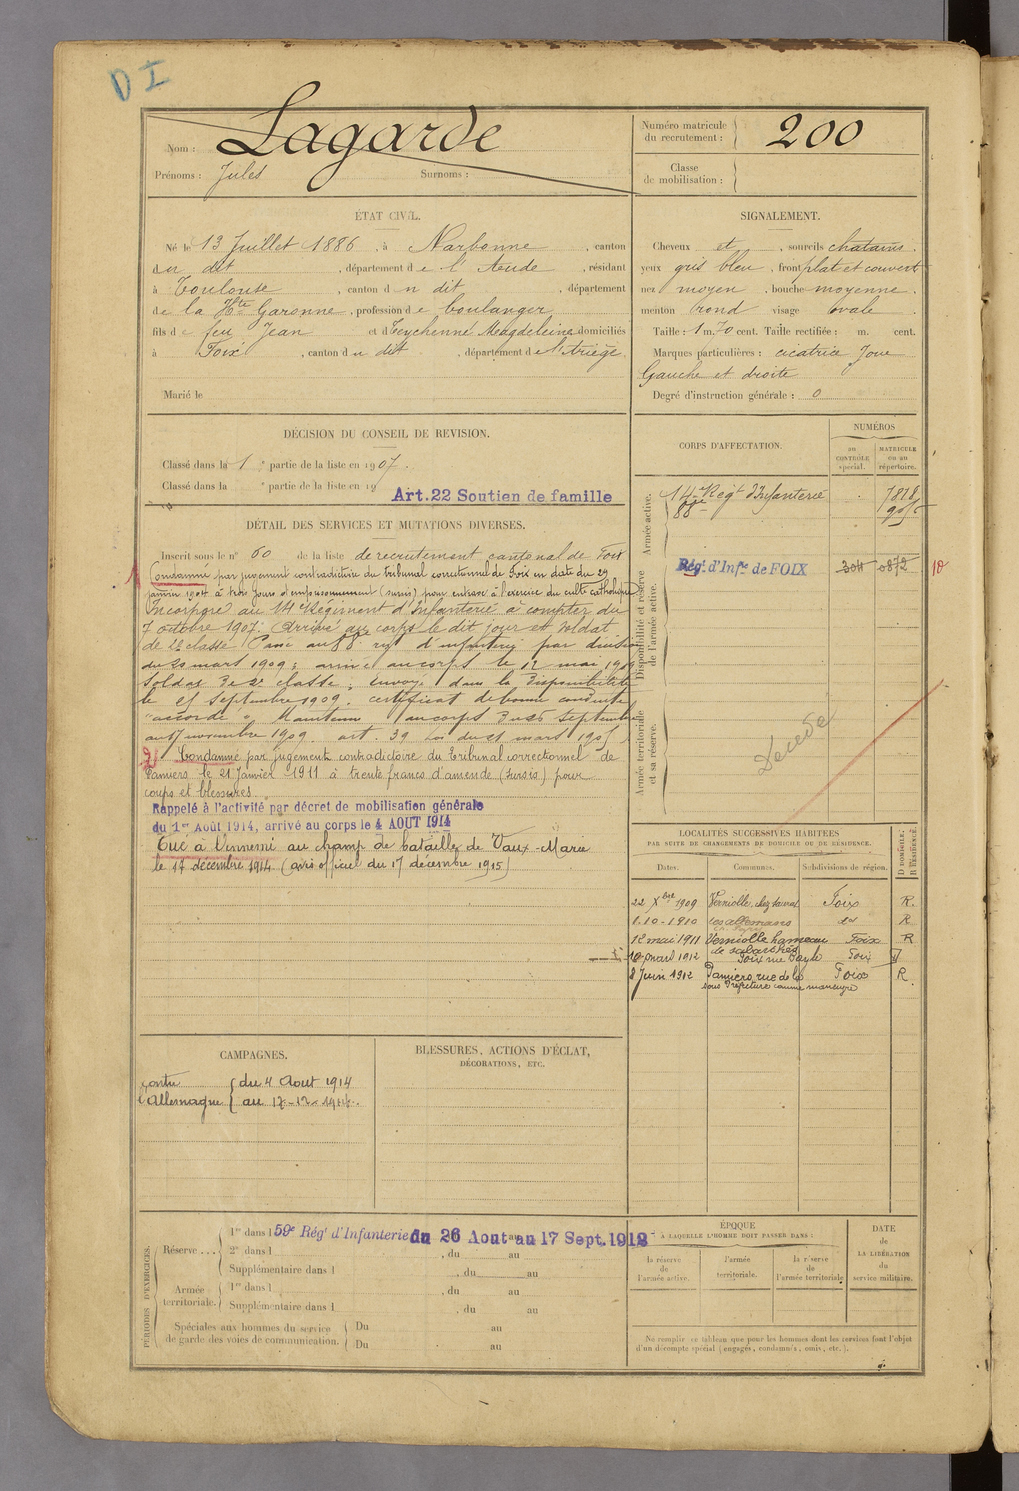 D I
Nom : Lagarde
Prénoms : Jules Surnoms :
Numéro matricule du recrutement : 200
Classe de mobilisation :
ÉTAT CIVIL.
Né le 13 Juillet 1886, à Narbonne, canton
du dit, département de l'Aude, résidant
à Toulouse, canton du dit, département
de la Hte Garonne, profession de boulanger
fils de feu Jean et de Teychenne Magdeleine domiciliés
à Foix, canton du dit, département de l'Ariège.
Marié le
SIGNALEMENT.
Cheveux et, sourcils chatains.
yeux gris bleu, front plat et couvert
nez moyen, bouche moyenne.
menton rond visage ovale.
Taille : 1 m. 70 cent. Taille rectifiée : m. cent.
Marques particulières : cicatrice Joue
Gauche et droite
Degré d'instruction générale : 0
DÉCISION DU CONSEIL DE REVISION.
Classé dans la 1e partie de la liste en 1907.
Classé dans la e partie de la liste en 19
Art. 22 Soutien de famille
DÉTAIL DES SERVICES ET MUTATIONS DIVERSES.
Inscrit sous le n° 60 de la liste de recrutement cantonal de Foix
Condamné par jugement contradictoire du tribunal correctionnel de Foix en date du 29
janvier 1904 à trois jours d'emprisonnement (sursis) pour entrave à l'exercice du culte catholique
Incorporé au 14e Régiment d'Infanterie à compter du
7 octobre 1907. Arrivé au corps le dit jour et soldat
de 2e classe. Passé au 88e rgt d'infanterie par décision
du 20 mars 1909 ; arrivé au corps le 12 mai 1909
Soldat de 2e classe ; envoyé dans la disponibilité
le 25 septembre 1909. certificat de bonne conduite
"accordé". Maintenu au corps du 26 septembre
au 17 novembre 1909. art. 39 loi du 21 mars 1905
2) Condamné par jugement contradictoire du Tribunal correctionnel de
Pamiers, le 21 Janvier 1911 à trente francs d'amende (sursis) pour
coups et blessures.
Rappelé à l'activité par décret de mobilisation générale
du 1er Août 1914, arrivé au corps le 4 AOUT 1914
Tué à l'ennemi au champ de bataille de Vaux-Marie
le 17 décembre 1914 (avis officiel du 17 décembre 1915)
CORPS D'AFFECTATION.
NUMÉROS
au CONTRÔLE spécial.
MATRICULE ou au répertoire.
Armée active.
14e Regt d'Infanterie 7828
88e
Disponibilité et réserve de l'armée active.
Régt. d'Infie de FOIX 304 0872 10
Armée territoriale et sa réserve.
LOCALITÉS SUCCESSIVES HABITÉES
PAR SUITE DE CHANGEMENTS DE DOMICILE OU DE RÉSIDENCE.
Dates. Communes. Subdivisions de région. D DOMICILE. R RÉSIDENCE.
22 Xbre 1909 Verniolle, chez Foix R.
1.10-1910 les allemans do R
12 mai 1911 Verniolle hameau Foix R
de
10 avril 1912 Foix rue Foix
8 Juin 1912 Pamiers, rue de la Foix R.
sous Préfecture comme
CAMPAGNES.
contre l'Allemagne { du 4 Aout 1914
au 17-12-1914.
BLESSURES, ACTIONS D'ÉCLAT,
DÉCORATIONS, ETC.
PÉRIODES D'EXERCICES.
Réserve ... 1re dans l 59e Rég. d'Infanterie du 26 Aout au 17 Sept. 1912
2e dans l , du au
Supplémentaire dans l , du au
Armée territoriale. 1re dans l , du au
Supplémentaire dans l , du au
Spéciales aux hommes du service Du au
de garde des voies de communication. Du au
ÉPOQUE
A LAQUELLE L'HOMME DOIT PASSER DANS :
la réserve de l'armée active.
l'armée territoriale.
la réserve de l'armée territoriale
DATE de LA LIBÉRATION du service militaire.
Ne remplir ce tableau que pour les hommes dont les services font l'objet
d'un décompte spécial (engagés, condamnés, omis, etc.).